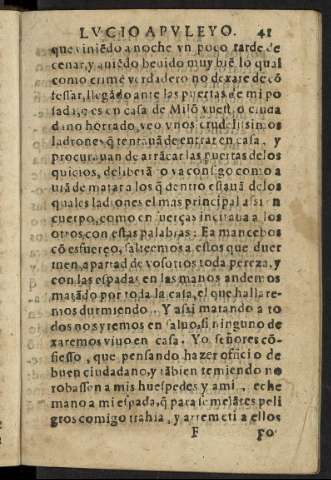 LVCIO APVLEYO. 41
que viniẽdo a noche vn poco tarde de
cenar, y auiẽdo beuido muy biẽ lo qual
como crimẽ verdadero no dexare de cõ
fessar, llegãdo ante las puertas de mi po
sada, q̃ es en casa de Milõ vuestro ciuda
dano honrado, veo vnos crudelissimos
ladrones q̃ tentauã de entrar en casa, y
procurauan de arrãcar las puertas delos
quicios, deliberã o va consigo como a
uiã de matar a los q̃ dentro estauã delos
quales ladrones el mas principal assi en
cuerpo, como en fuerças incitaua a los
otros con estas palabras: Ea mancebos
cõ esfuerço, salteemos a estos que duer
men, apartad de vosotros toda pereza, y
con las espadas en las manos andemos
matãdo por toda la casa, el que hallare-
mos durmiendo... Y assi matando a to
dos nos yremos en saluo, si ninguno de
xaremos viuo en casa. Yo señores cõ-
fiesso, que pensando hazer officio de
buen ciudadano, y tãbien temiendo no
robassen a mis huespedes y a mi, eche
mano a mi espada, q̃ para semejãtes peli
gros comigo trahia, y arremeti a ellos
F